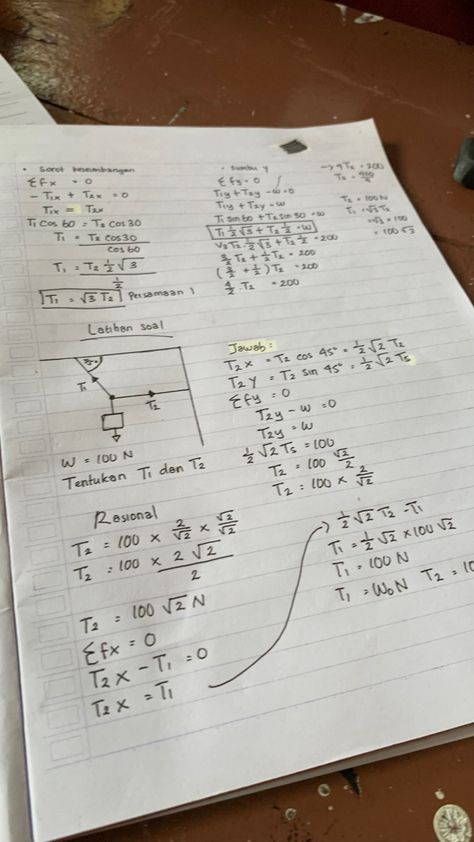 • Sorot keseimbangan
Σfx = 0
- T₁x + T₂x = 0
T₁x = T₂x
T₁ cos 60 = T₂ cos 30
T₁ = T₂ cos 30
cos 60
T₁ = T₂ ½ √3
½
T₁ = √3 T₂ Persamaan 1
• Sumbu y
Σfy = 0
T₁y + T₂y - w = 0
T₁y + T₂y = w
T₁ sin 60 + T₂ sin 30 = w
T₁ ½ √3 + T₂ ½ = w
√3 T₂ . ½ √3 + T₂ ½ = 200
3/2 T₂ + ½ T₂ = 200
(3/2 + ½) T₂ = 200
4/2 . T₂ = 200
→ 4 T₂ = 200
T₂ = 100 N
T₁ = √3 T₂
= √3 . 100
= 100 √3
Latihan soal
T₁
T₂
W = 100 N
Tentukan T₁ dan T₂
Jawab :
T₂x = T₂ cos 45° = ½ √2 T₂
T₂y = T₂ sin 45° = ½ √2 T₅
Σfy = 0
T₂y - w = 0
T₂y = w
½ √2 T₅ = 100
T₂ = 100 √2/2
T₂ = 100 × 2/√2
Rasional
T₂ = 100 × 2/√2 × √2/√2
T₂ = 100 × 2 √2
2
T₂ = 100 √2 N
Σfx = 0
T₂x - T₁ = 0
T₂x = T₁
→ ½ √2 T₂ = T₁
T₁ = ½ √2 × 100 √2
T₁ = 100 N
T₁ = W₀ N T₂ = 10